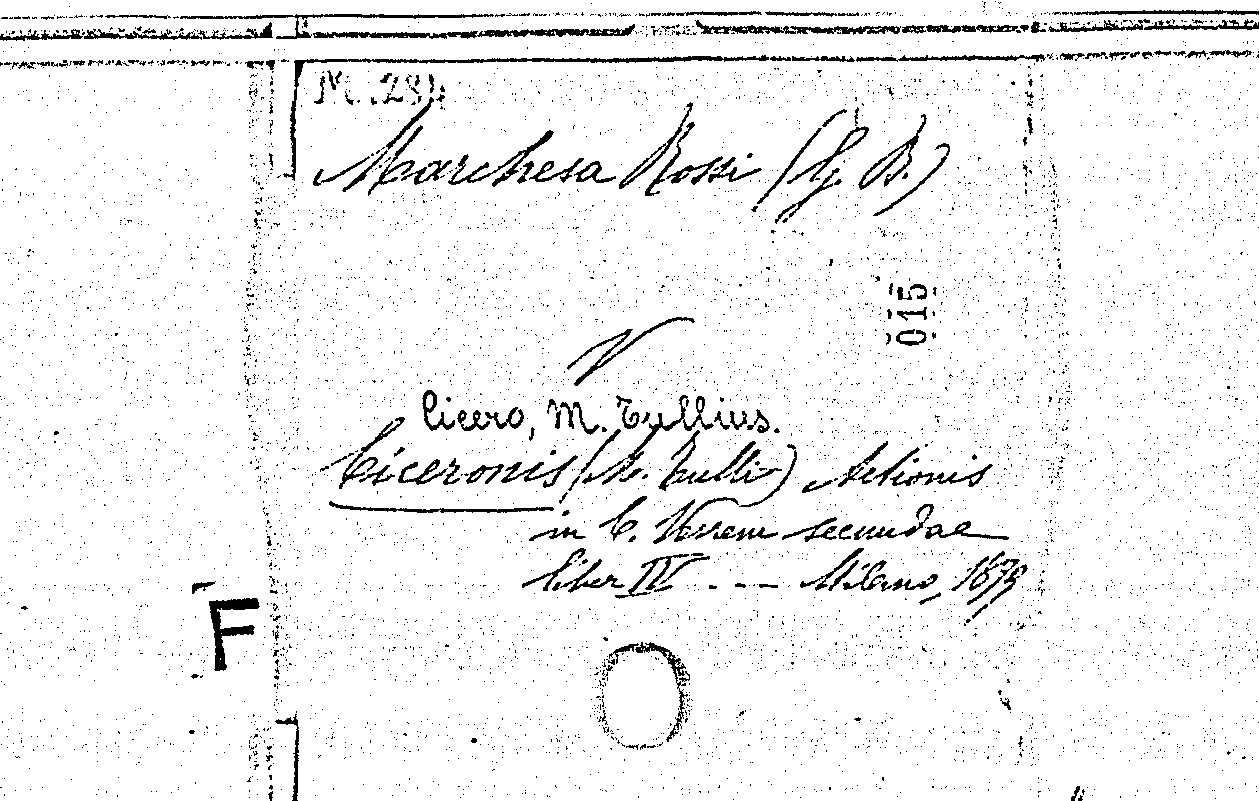 M. 284
Marchesa Rossi (G. B.)
015
V
Cicero, M. Tullius.
Ciceronis (M. Tulli) Actionis
in C. Verrem secundae
liber IV --- Milano, 1679
F